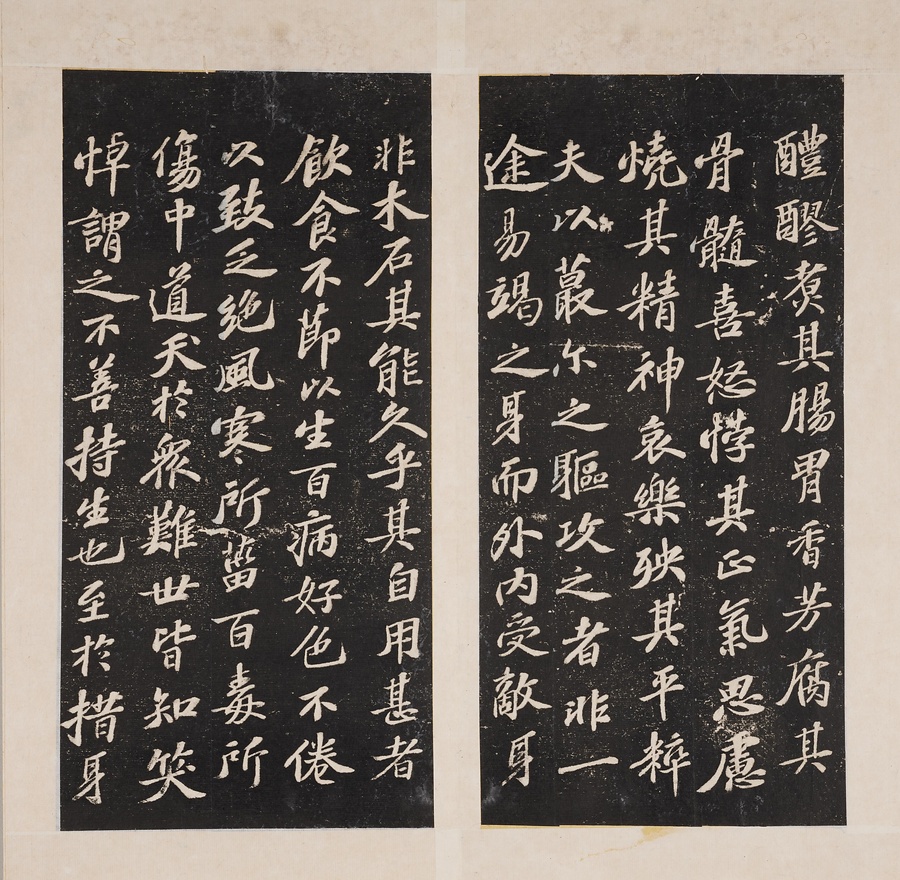 醴醪煑其腸胃香芳腐其
骨髓喜怒悖其正氣思慮
燒其精神哀樂殃其平粹
夫以蕞尔之軀攻之者非一
途易竭之身而外内受敵身
非木石其能久乎其自用甚者
飲食不節以生百病好色不倦
以致乏絶風寒所菑百毒所
傷中道夭於衆難世皆知笑
悼謂之不善持生也至於措身